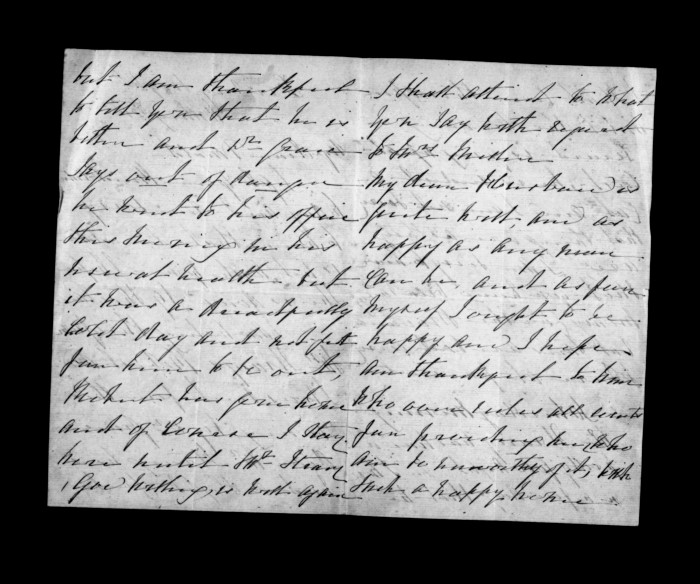 but I am thankful
to tell you that he is
better and Dr Grace
says out of danger
he went to his office
this morning in his
usual health but
it was a dreadfully
cold day and not fit
for him to be out,
Robert has gone home
and of course I stay
here until Mr
, God willing, is well again
I shall attend to what
you say with respect
to Mrs
My dear Husband is
quite well, and as
happy as any man
can be, and as for
myself I ought to be
happy and I hope
am thankful to him
who over rules all events
for providing me, who
am so unworthy of it, with
such a happy home